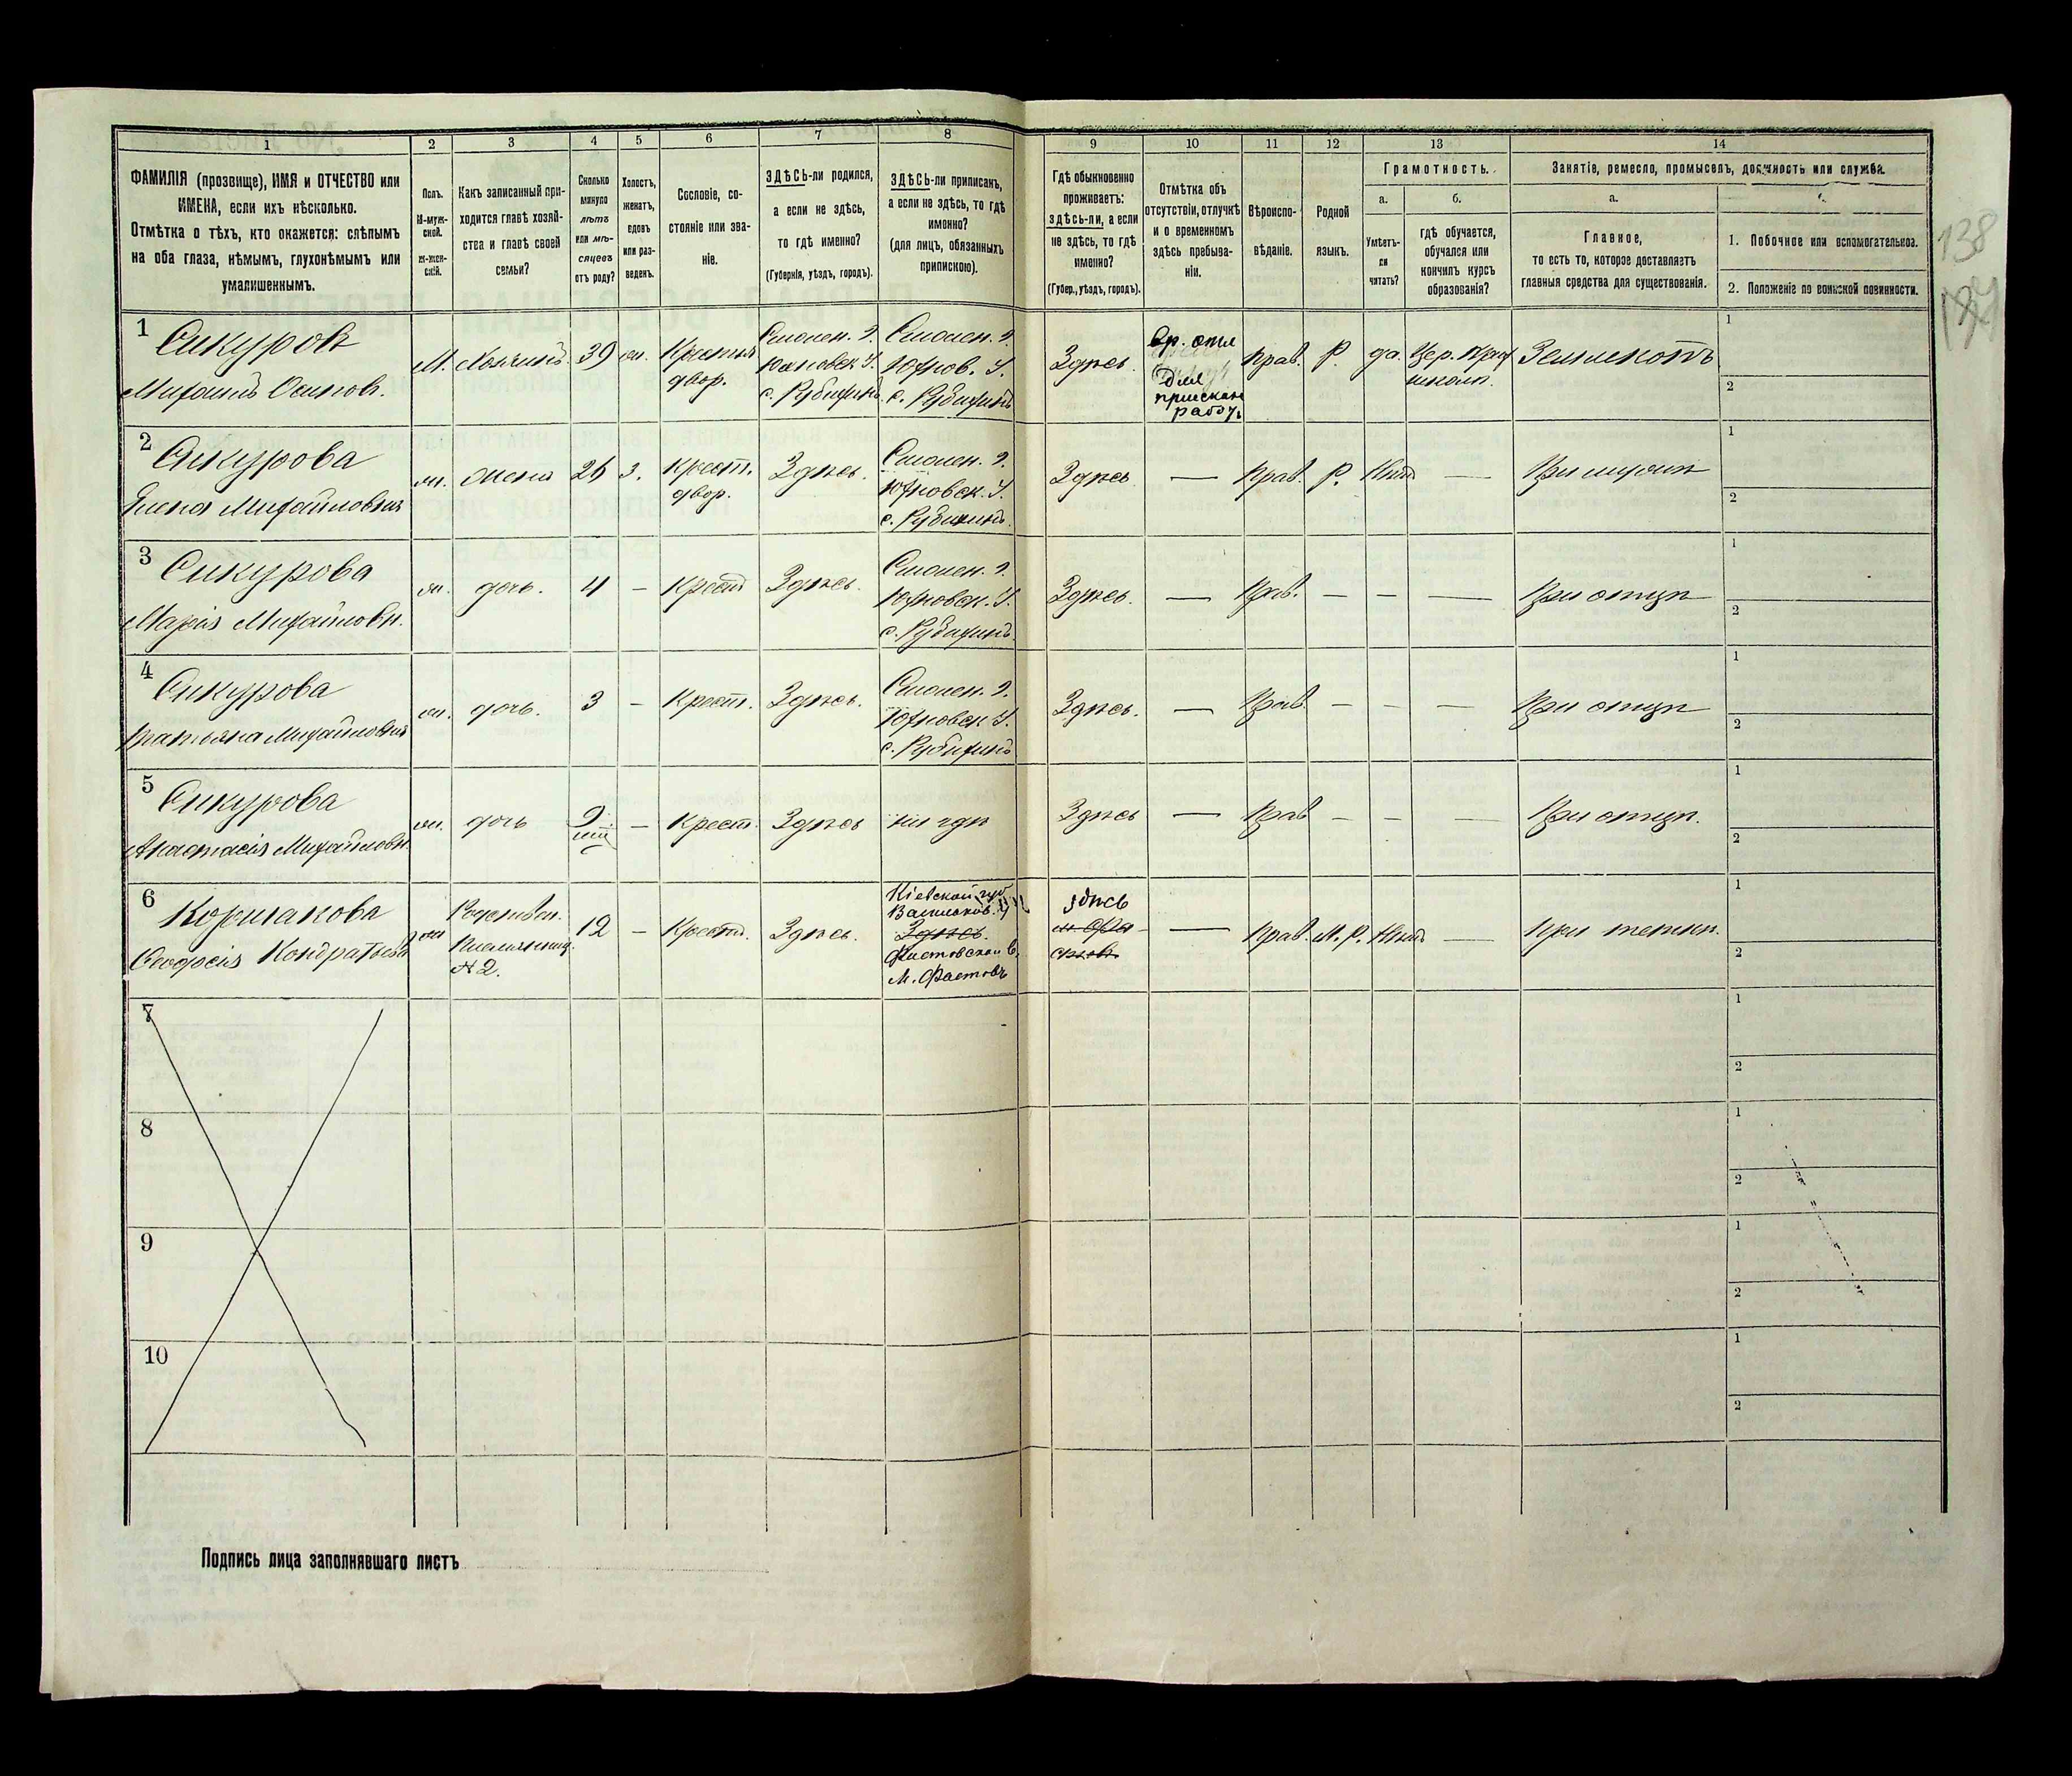 1 2 3 4 5 6 7 8 9 10 11 12 13 14
ФАМИЛІЯ (прозвище), ИМЯ и ОТЧЕСТВО или
ИМЕНА, если ихъ нѣсколько.
Отмѣтка о тѣхъ, кто окажется: слѣпымъ
на оба глаза, нѣмымъ, глухонѣмымъ или
умалишеннымъ.
Полъ.
М-муж-
ской.
ж-жен-
скій.
Какъ записанный при-
ходится главѣ хозяй-
ства и главѣ своей
семьи?
Сколько
минуло
лѣтъ
или мѣ-
сяцевъ
отъ роду?
Холостъ,
женатъ,
вдовъ
или раз-
веденъ.
Сословіе, со-
стояніе или зва-
ніе.
ЗДѢСЬ-ли родился,
а если не здѣсь,
то гдѣ именно?
(Губернія, уѣздъ, городъ).
ЗДѢСЬ-ли приписанъ,
а если не здѣсь, то гдѣ
именно?
(для лицъ, обязанныхъ
припискою).
Гдѣ обыкновенно
проживаетъ:
здѣсь-ли, а если
не здѣсь, то гдѣ
именно?
(Губер., уѣздъ, городъ).
Отмѣтка объ
отсутствіи, отлучкѣ
и о временномъ
здѣсь пребыва-
ніи.
Вѣроиспо-
вѣданіе.
Родной
языкъ.
Грамотность.
а.
Умѣетъ-
ли
читать?
б.
гдѣ обучается,
обучался или
кончилъ курсъ
образованія?
Занятіе, ремесло, промыселъ, должность или служба.
а.
Главное,
то есть то, которое доставляетъ
главныя средства для существованія.
1. Побочное или вспомогательное.
2. Положеніе по воинской повинности.
138
1 Сикуровъ
Михаилъ Осиповъ.
М. Хозяинъ 39 Крестья
двор.
Смолен. г.
Юхновск. У.
с. Рубихинъ
Смолен. г.
Юхнов. У.
с. Рубихинъ
Здѣсь
Вр. отл
для
приискан
работъ
Прав. Р. да. Цер. Прих
школѣ.
Землекопъ
1
2
2 Сикурова
Елена Михайловна
ж. жена 26 З. Крест.
двор.
Здѣсь.
Смолен. г.
Юхновск. У.
с. Рубихинъ.
Здѣсь — Прав. Р. Нѣтъ — При мужѣ
1
2
3 Сикурова
Марія Михайловн.
ж. дочь. 4 – Крест Здѣсь.
Смолен. г.
Юхновск. У.
с. Рубихинъ.
Здѣсь. — Прав. – – — При отцѣ
1
2
4 Сикурова
Татьяна Михайловна
ж. дочь. 3 – Крест. Здѣсь.
Смолен. г.
Юхновск У.
с. Рубихинъ
Здѣсь. — Прав. – – — При отцѣ
1
2
5 Сикурова
Анастасія Михайловн.
ж. дочь 9 – Крест. Здѣсь ни гдѣ Здѣсь — Прав – – — При отцѣ.
1
2
6 Коршакова
Феодосія Кондратьева
ж
Родствен.
Племянниц.
№ 2.
12 – Крест. Здѣсь.
Кіевской губ
Васильков. У
Здѣсь.
Фастовской В.
М. Фастовъ
здѣсь
— Прав. М. Р. Нѣтъ — При теткѣ.
1
2
7
1
2
8
1
2
9
1
2
10
1
2
Подпись лица заполнявшаго листъ